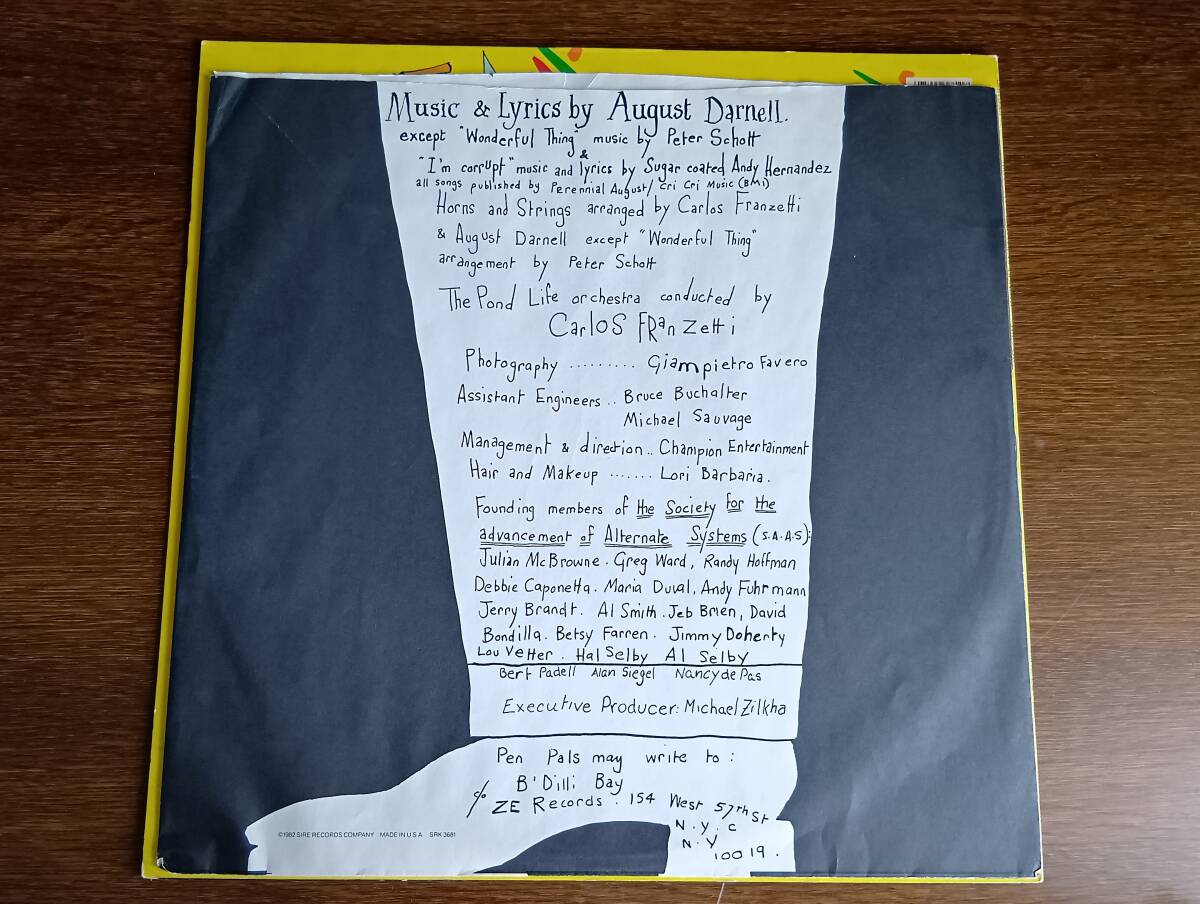 Music & Lyrics by August Darnell.
except "Wonderful Thing" music by Peter Schott
&
"I'm corrupt" music and lyrics by Sugar coated Andy Hernandez
all songs published by Perennial August/ Cri Cri Music (BMI)
Horns and Strings arranged by Carlos Franzetti
& August Darnell except "Wonderful Thing"
arrangement by Peter Schott
The Pond Life orchestra conducted by
Carlos Franzetti
Photography ......... Giampietro Favero
Assistant Engineers .. Bruce Buchalter
Michael Sauvage
Management & direction .. Champion Entertainment
Hair and Makeup ....... Lori Barbaria.
Founding members of the Society for the
advancement of Alternate Systems (S.A.A.S):
Julian McBrowne . Greg Ward, Randy Hoffman
Debbie Caponetta. Maria Duval, Andy Fuhrmann
Jerry Brandt. Al Smith. Jeb Brien, David
Bondilla. Betsy Farren. Jimmy Doherty
Lou Vetter. Hal Selby Al Selby
Bert Padell Alan Siegel Nancy de Pas
Executive Producer: Michael Zilkha
Pen Pals may write to :
B'Dilli Bay
c/o ZE Records . 154 West 57th St
N.Y.C
N.Y
10019.
©1982 SIRE RECORDS COMPANY MADE IN U.S.A SRK 3681